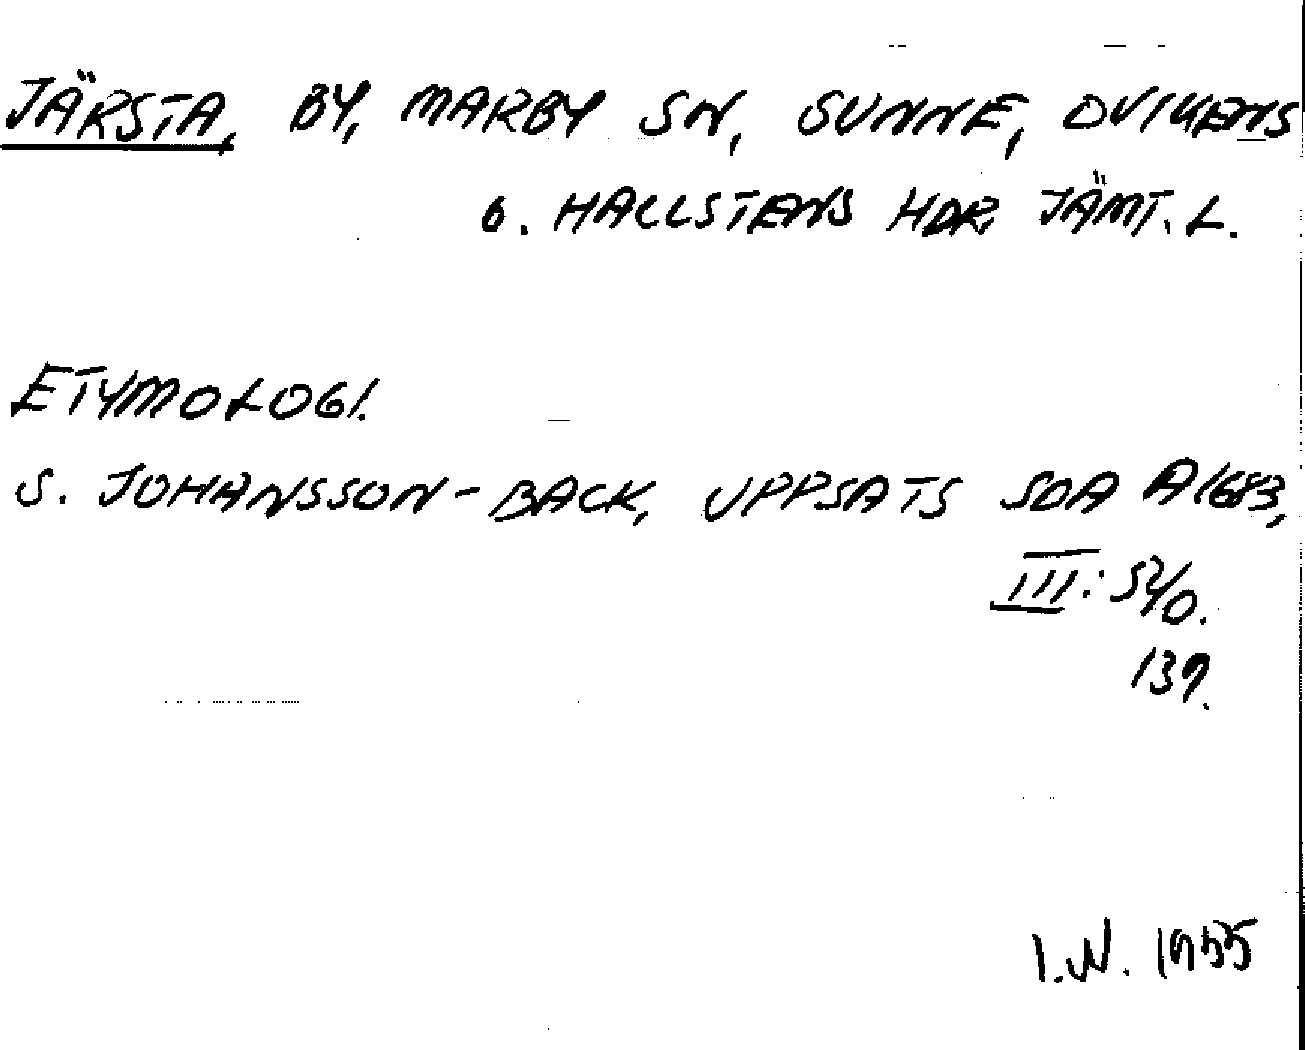 JÄRSTA, BY, MARBY SN, SUNNE, OVIKENS
O. HALLSTENS HDR. JÄMT. L.
ETYMOLOGI.
S. JOHANSSON-BACK, UPPSATS SOA A1683,
III:
139.
I.W. 1955